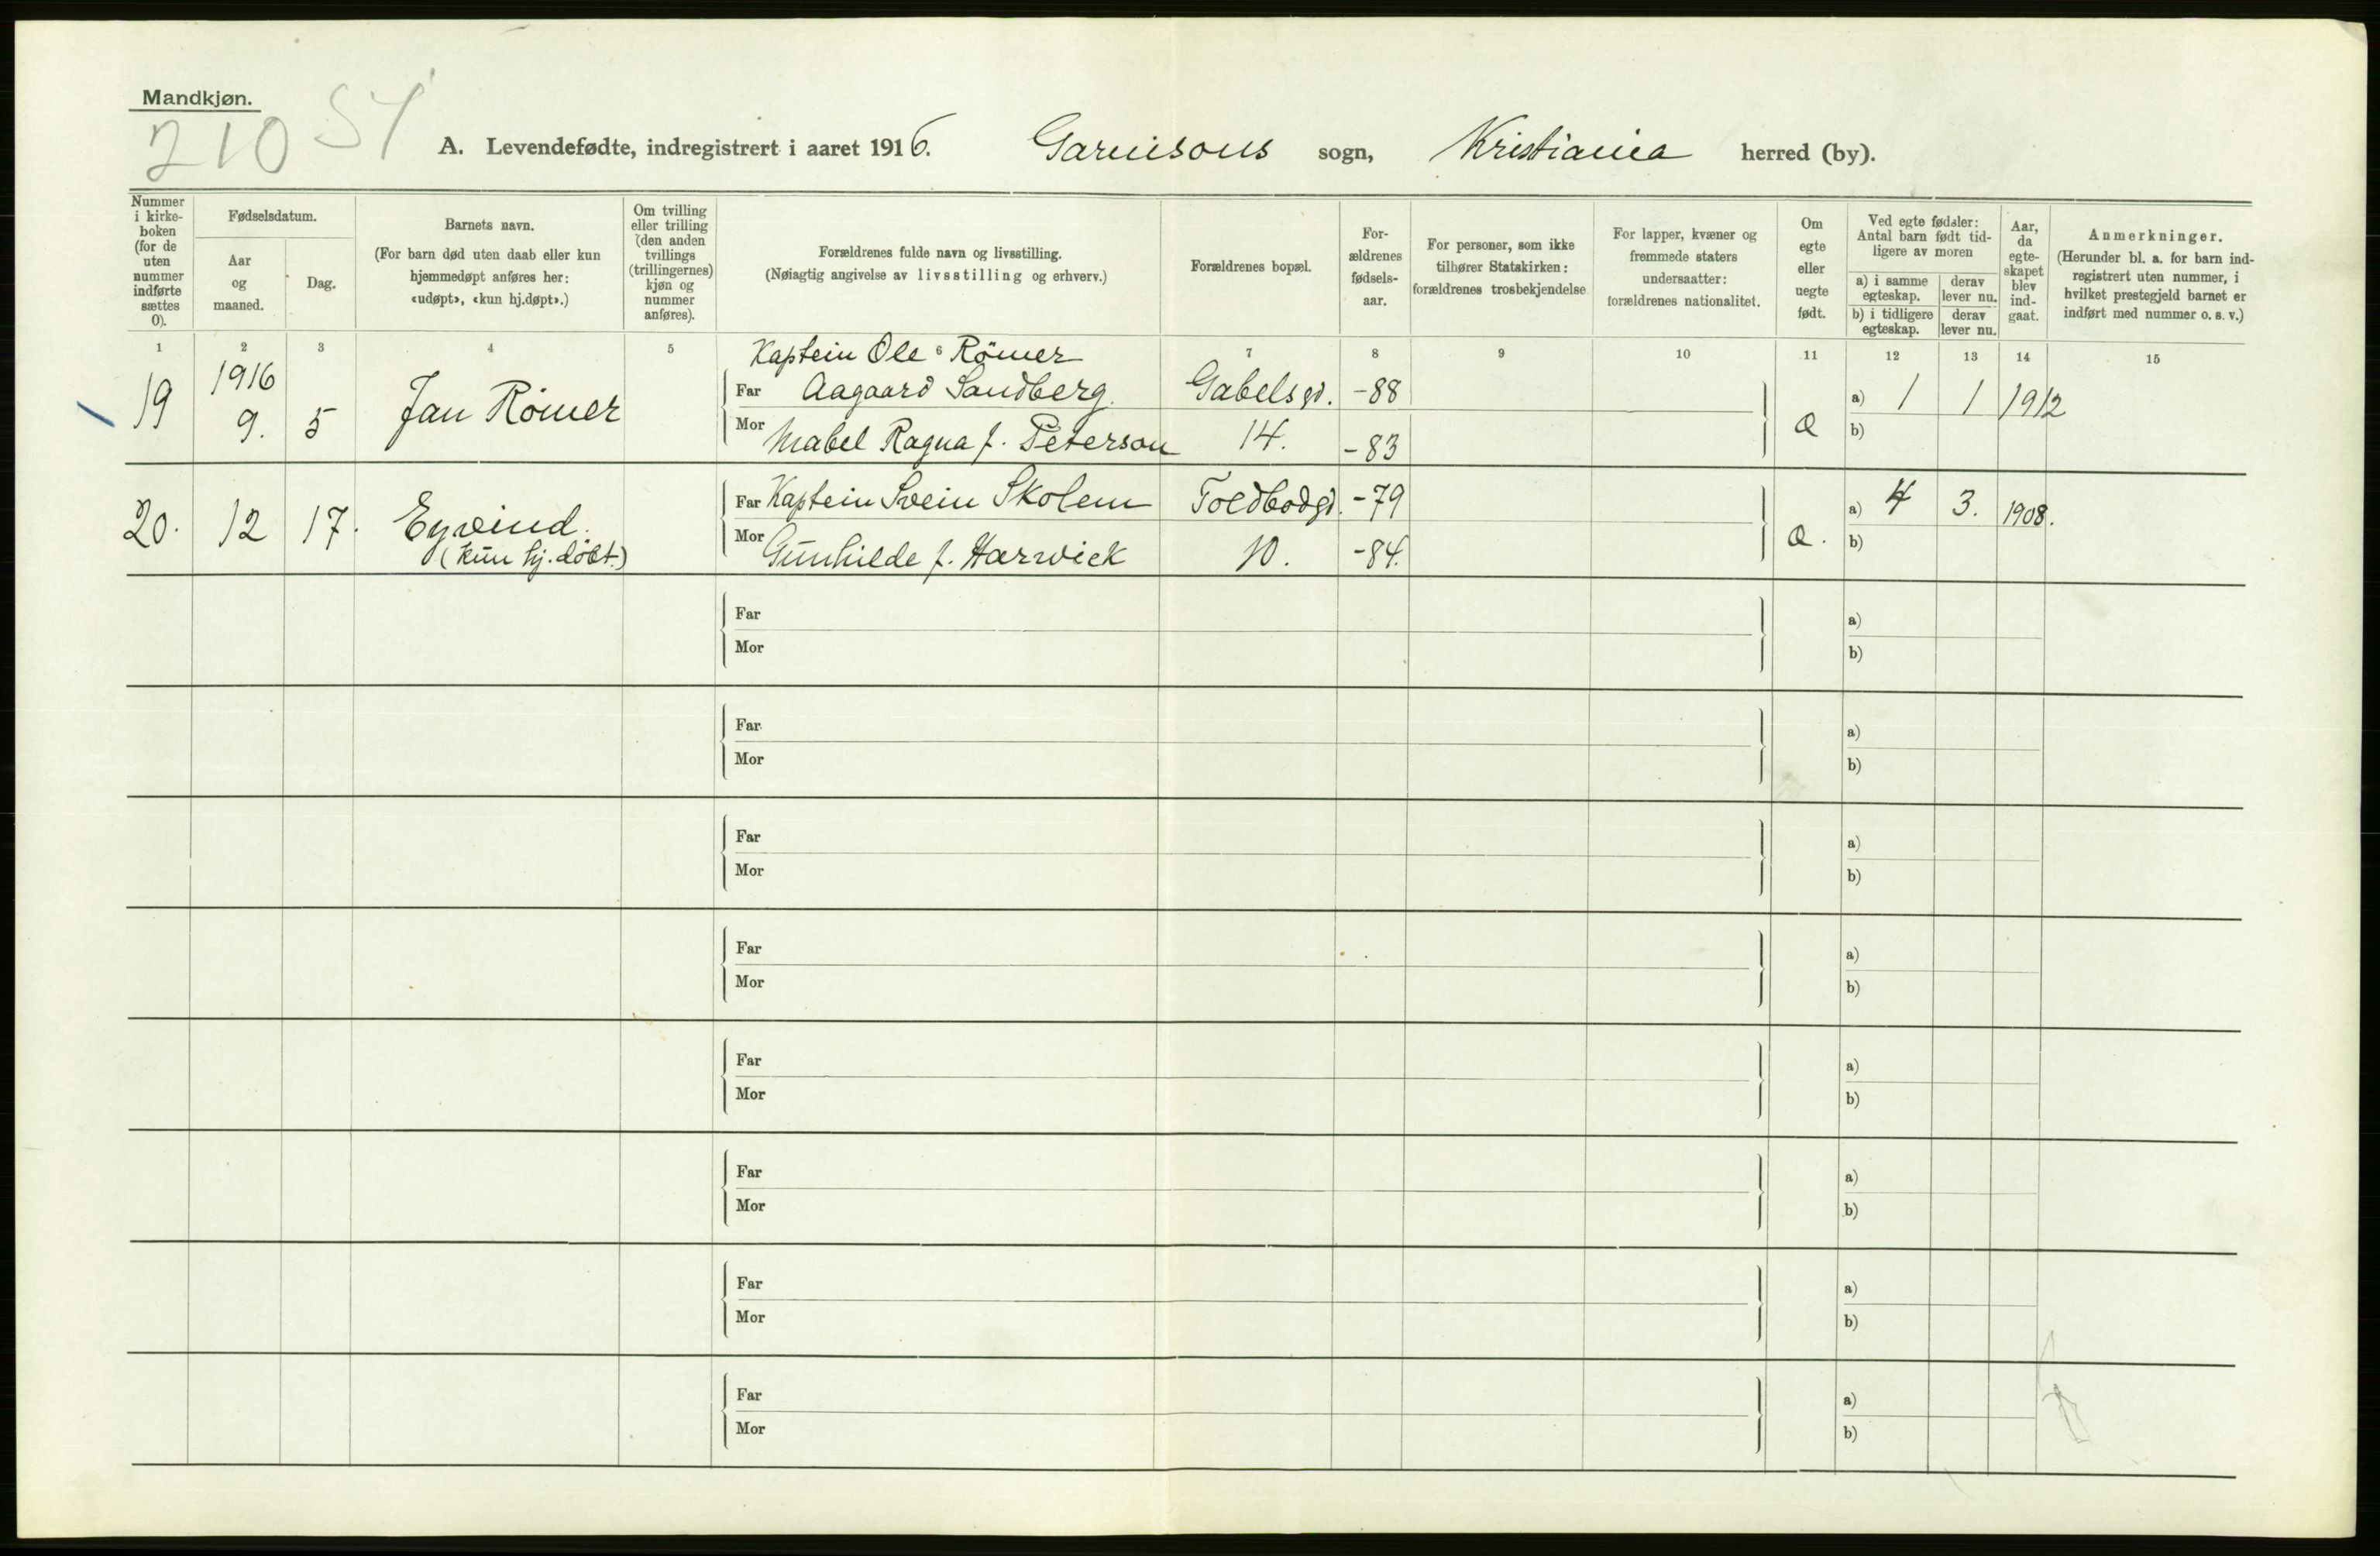 Mandkjøn.
210 51
A. Levendefødte, indregistrert i aaret 1916. Garnisons sogn, Kristiania herred (by).
Nummer i kirke- boken (for de uten nummer indførte sættes 0).
Fødselsdatum.
Aar og maaned.
Dag.
Barnets navn.
(For barn død uten daab eller kun hjemmedøpt anføres her: «udøpt», «kun hj.døpt».)
Om tvilling eller trilling (den anden tvillings (trillingernes) kjøn og nummer anføres).
Forældrenes fulde navn og livsstilling.
(Nøiagtig angivelse av livsstilling og erhverv.)
Forældrenes bopæl.
For- ældrenes fødsels- aar.
For personer, som ikke tilhører Statskirken: forældrenes trosbekjendelse
For lapper, kvæner og fremmede staters undersaatter: forældrenes nationalitet.
Om egte eller uegte født.
Ved egte fødsler: Antal barn født tid- ligere av moren
a) i samme egteskap.
derav lever nu.
b) i tidligere egteskap.
derav lever nu.
Aar, da egte- skapet blev ind- gaat.
Anmerkninger.
(Herunder bl. a. for barn ind- registrert uten nummer, i hvilket prestegjeld barnet er indført med nummer o. s. v.)
1 2 3 4 5 6 7 8 9 10 11 12 13 14 15
Kaptein Ole Römer
19 1916 9. 5 Jan Römer Far Aagaard Sandberg. Gabelsgd. -88 a) 1 1 1912
Mor Mabel Ragna f. Peterson 14. -83 a b)
20. 12 17. Eyvind. Far Kaptein Svein Skolem Toldbodgd. -79 a) 4 3. 1908.
(kun hj. döbt.) Mor Gunhilde f. Harwick 10. -84. a. b)
Far a)
Mor b)
Far a)
Mor b)
Far a)
Mor b)
Far a)
Mor b)
Far a)
Mor b)
Far a)
Mor b)
Far a)
Mor b)
Far a)
Mor b)